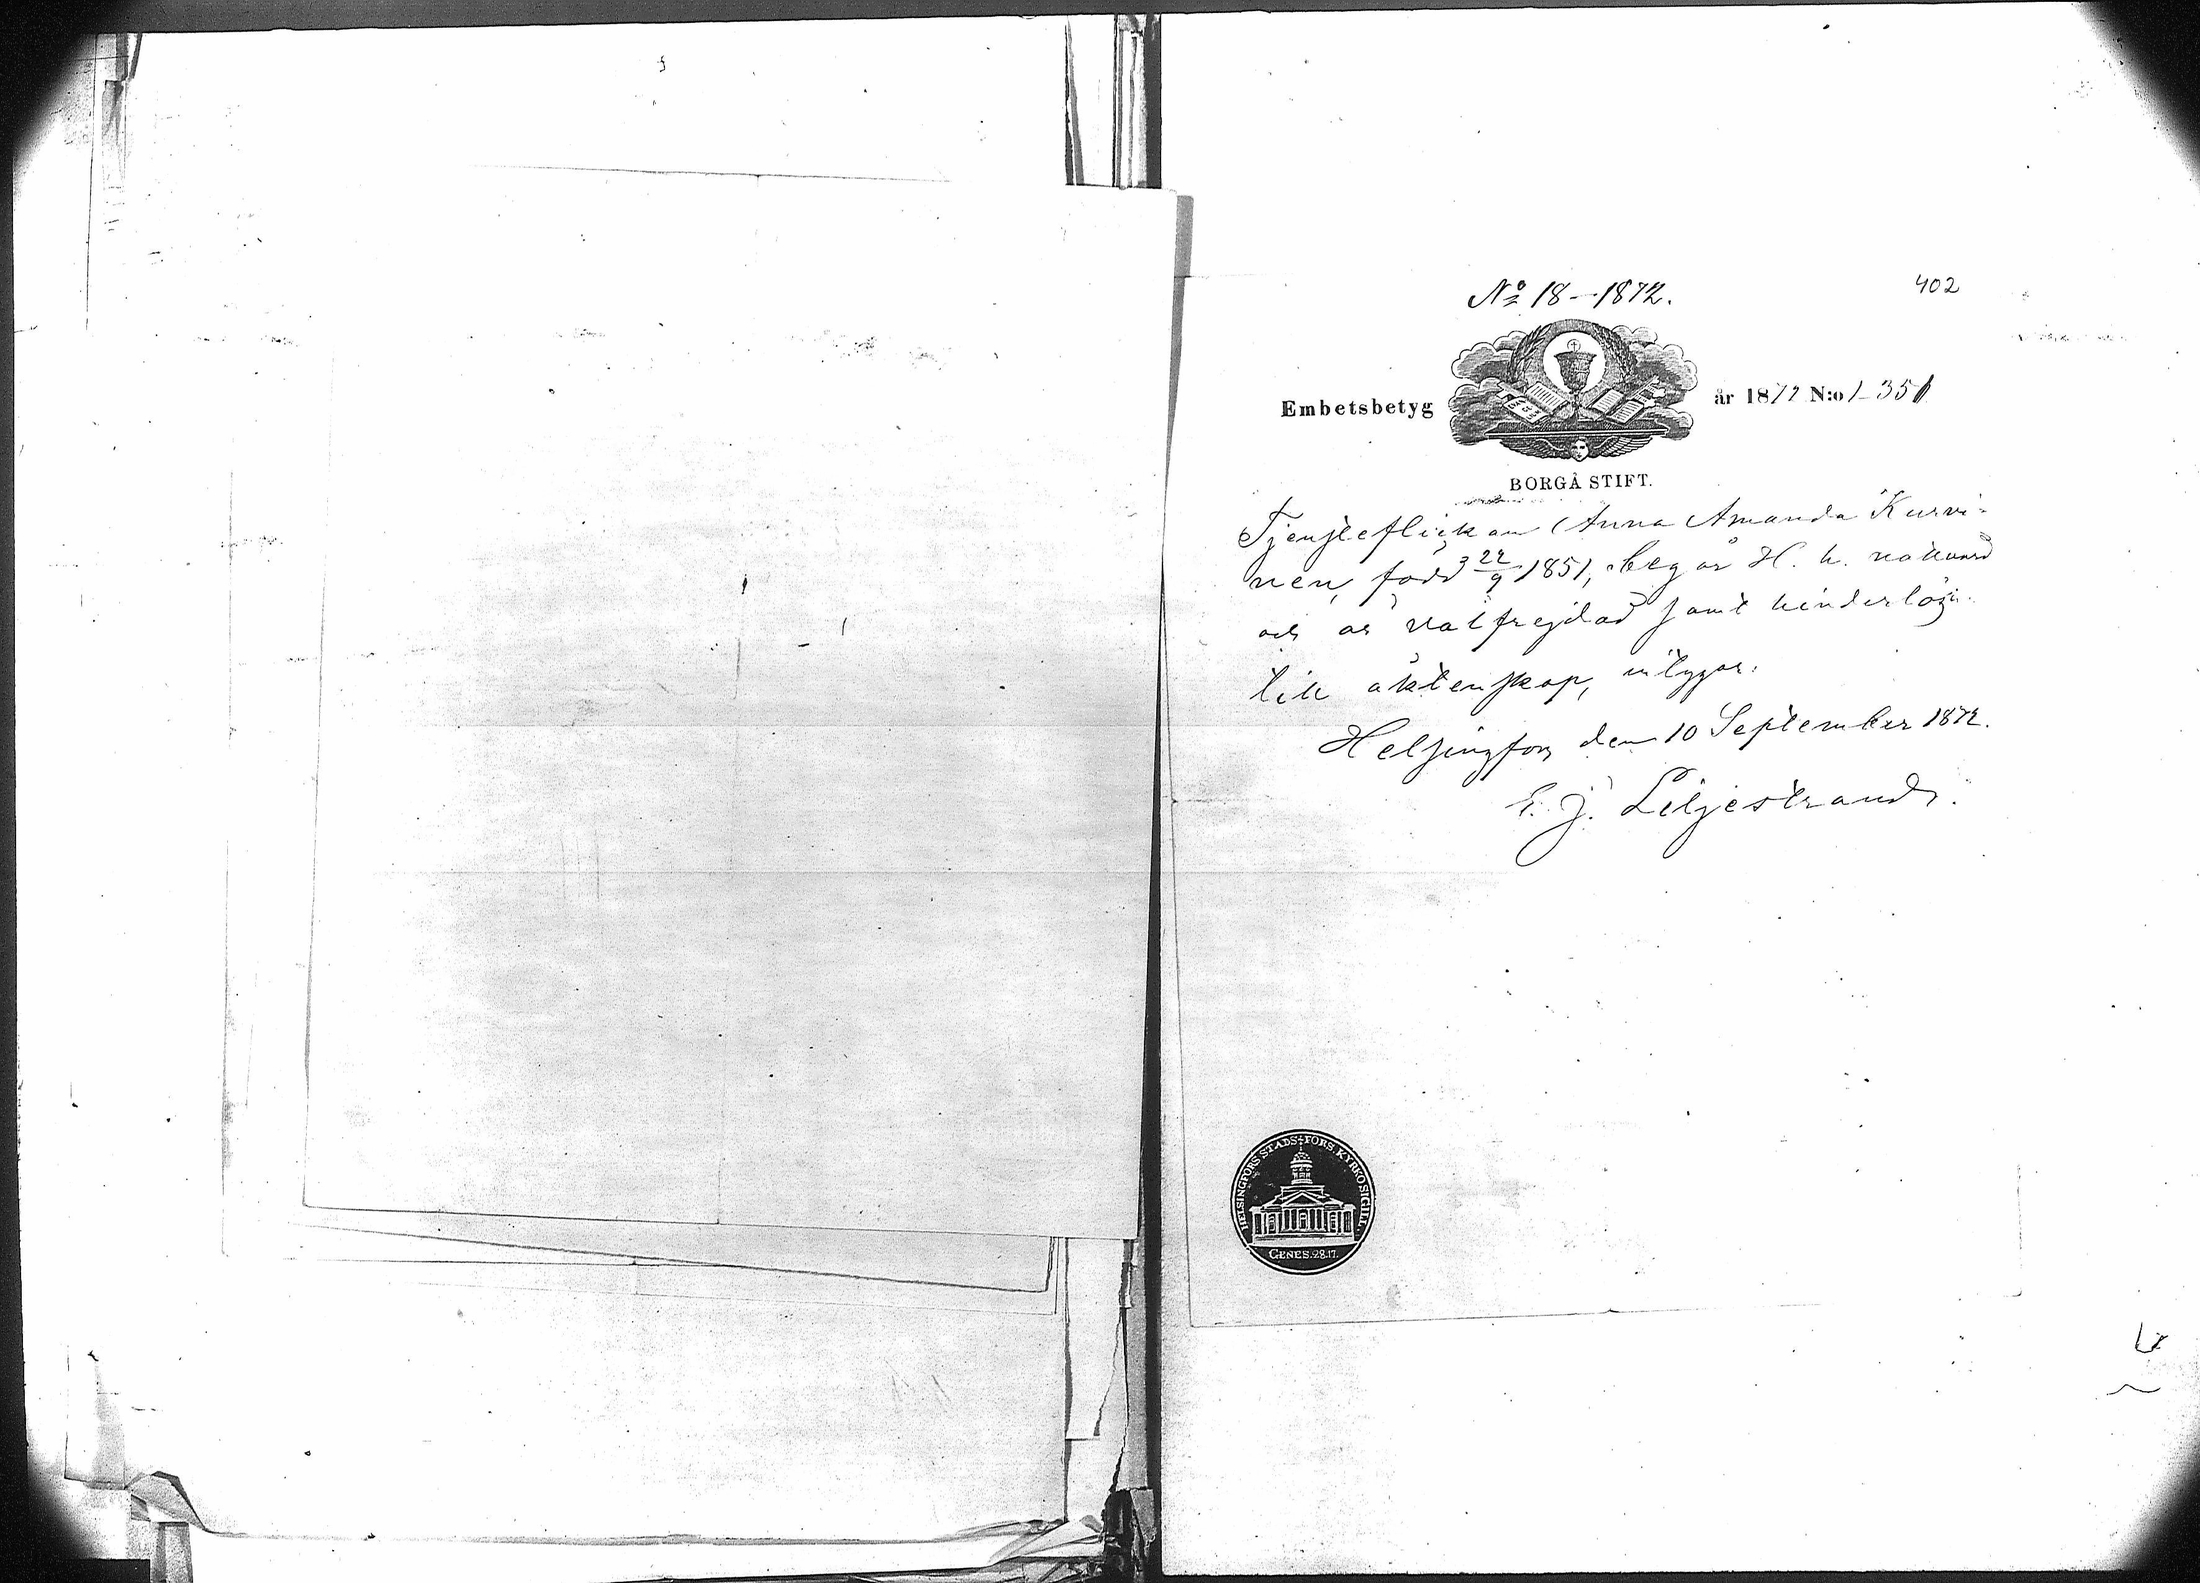 402
Nº 18–1872.
Embetsbetyg år 1872 N:o 1–351
BORGÅ STIFT.
Tjensteflickan Anna Amanda Kurvi-
nen, född 22/9 1851, begår H. h. nattvard
och är välfrejdad samt hinderlös
till äktenskap, intygar.
Helsingfors den 10 September 1872.
E. J. Liljestrand.
HELSINGFORS STADS FÖRS. KYRKOSIGILL.
GENES. 28.17.